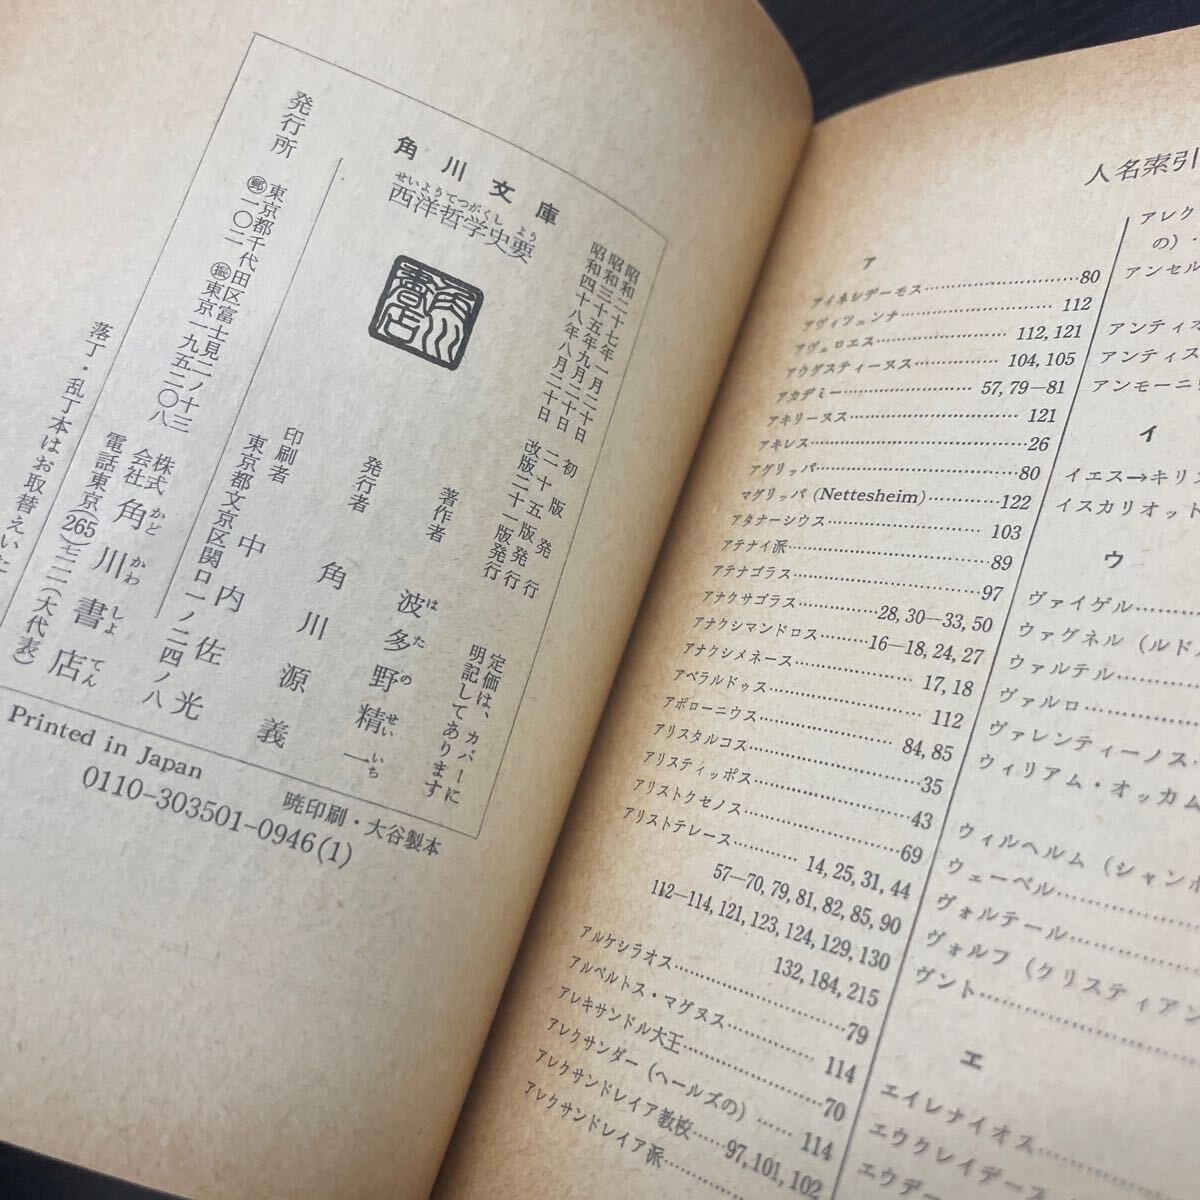 角川文庫
せいようてつがくしよう
西洋哲学史要
昭和二十七年一月二十日 初版発行
昭和三十五年九月二十日 二十五版発行
昭和四十八年八月二十日 改版二十一版発行
定価は、カバーに
明記してあります
著作者 波多野精一
はたのせいいち
発行者 角川源義
印刷者 中内佐光
東京都文京区関口一ノ二四ノ八
発行所
株式会社 角川書店
かどかわしょてん
東京都千代田区富士見二ノ十三
郵一〇二 振東京一九五二〇八
電話東京(265)七一一一(大代表)
落丁・乱丁本はお取替えいた
Printed in Japan
暁印刷・大谷製本
0110-303501-0946(1)
人名索引
ア
アイネシデーモス……80
アヴィツェンナ……112
アヴェロエス……112, 121
アウグスティーヌス……104, 105
アカデミー……57, 79—81
アキリーヌス……121
アキレス……26
アグリッパ……80
マグリッパ (Nettesheim)……122
アタナーシウス……103
アテナイ派……89
アテナゴラス……97
アナクサゴラス……28, 30—33, 50
アナクシマンドロス……16—18, 24, 27
アナクシメネース……17, 18
アベラルドゥス……112
アポローニウス……84, 85
アリスタルコス……35
アリスティッポス……43
アリストクセノス……69
アリストテレース……14, 25, 31, 44
57—70, 79, 81, 82, 85, 90
112—114, 121, 123, 124, 129, 130
132, 184, 215
アルケシラオス……79
アルベルトス・マグヌス……114
アレキサンドル大王……70
アレクサンダー (ヘールズの)……114
アレクサンドレイア教校……97, 101, 102
アレクサンドレイア派……
アレク
の)・
アンセル
アンティオ
アンティス
アンモーニ
イ
イエス→キリス
イスカリオット
ウ
ヴァイゲル……
ヴァグネル (ルドル
ヴァルテル……
ヴァルロ……
ヴァレンティーノス…
ウィリアム・オッカム
ウィルヘルム (シャンポ
ウェーベル……
ヴォルテール……
ヴォルフ (クリスティアン
ヴント……
エ
エイレナイオス……
エウクレイデース
エウデー